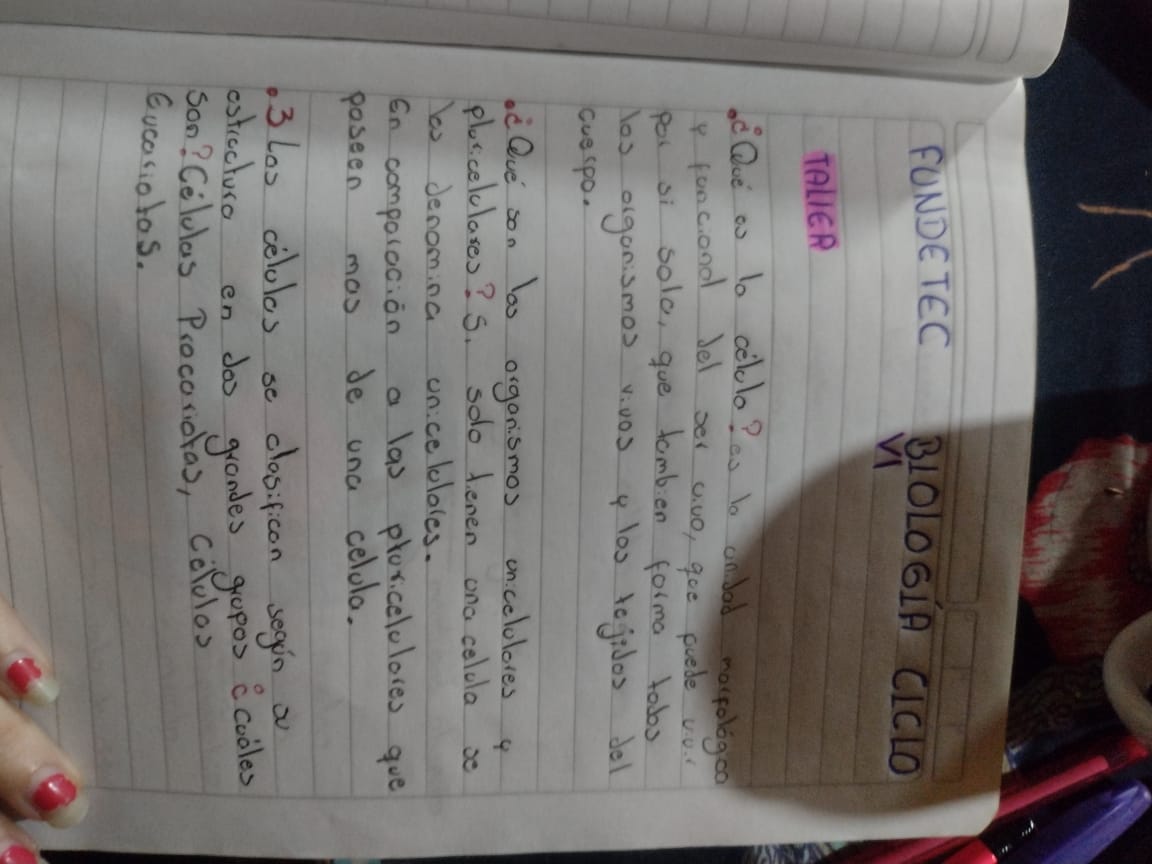 FUNDETEC BIOLOGÍA CICLO
VI
TALLER
.¿Qué es la célula? es la unidad morfológica
y funcional del ser vivo, que puede vivir
por si sola, que tambien forma todos
los organismos vivos y los tegidos del
cuerpo.
.¿Qué son los organismos unicelulares y
pluricelulares? Si solo tienen una celula se
les denomina unicelulares.
En comparación a las pluricelulares que
poseen mas de una celula.
.3 Las células se clasifican según su
estructura en dos grandes grupos ¿cuáles
son? Células Procariotas, Células
Eucariotas.